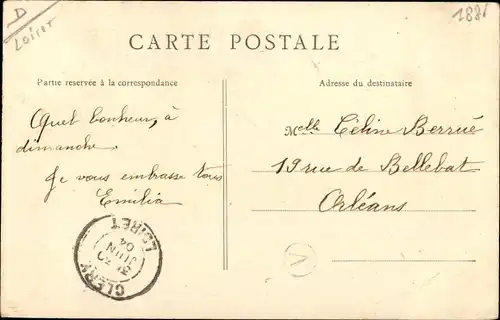 D
Loiret
188
CARTE POSTALE
Partie reservée à la correspondance
Adresse du destinataire
Quel bonheur, à
dimanche.
Je vous embrasse tous
Emilia
Melle Céline Berrué
19 rue de Bellebat
Orléans
CLERY
JUIN
04
LOIRET